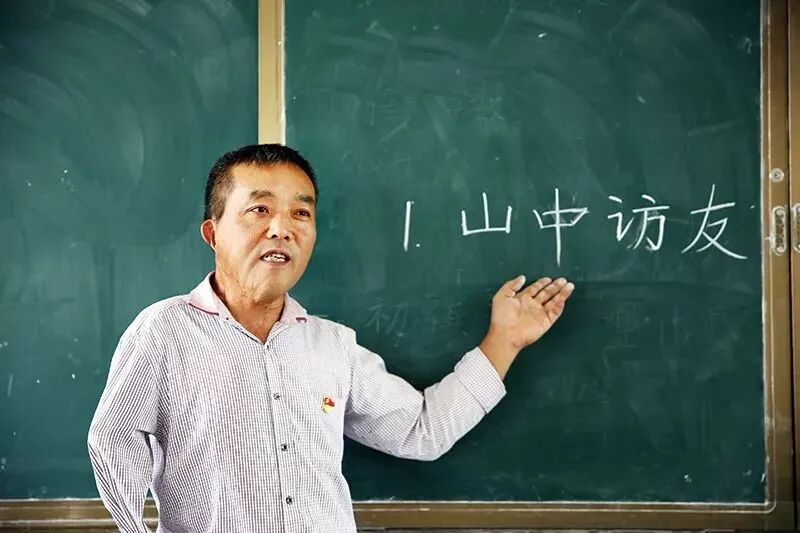 1. 山中访友